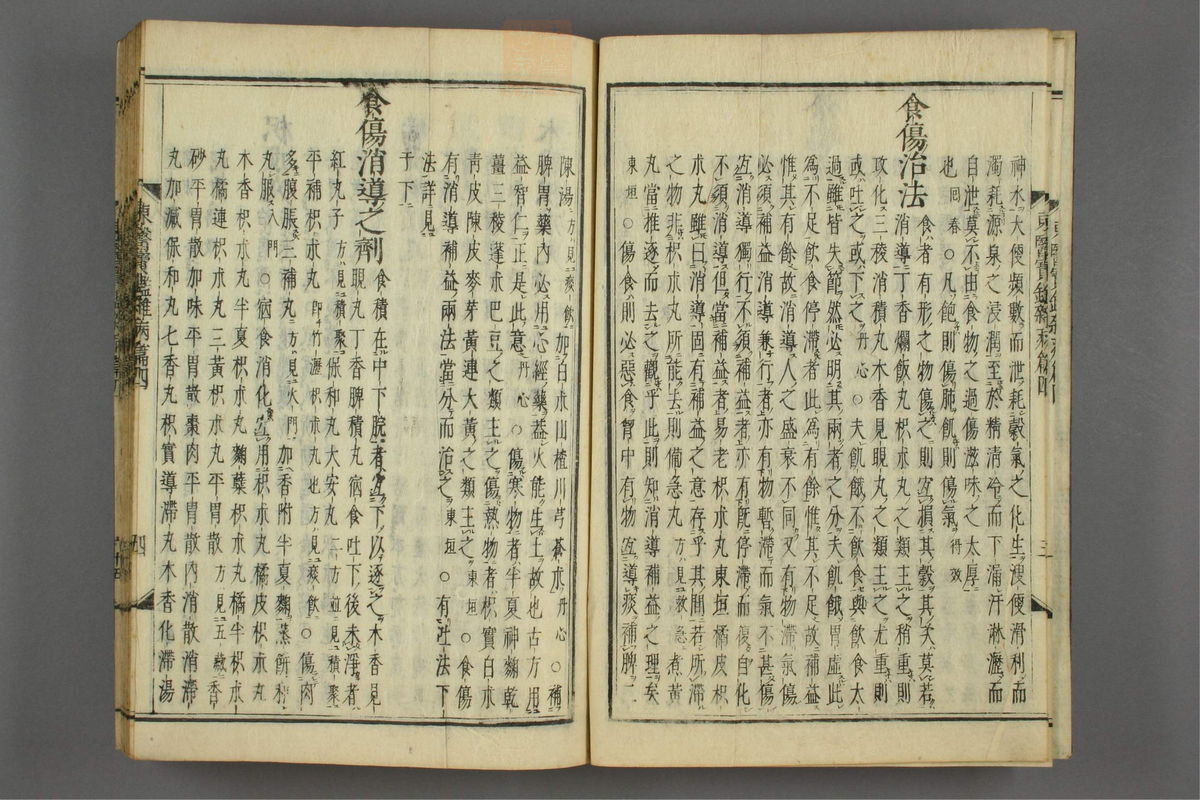 神水大便頻數而泄耗穀氣之化生溲便滑利而
濁耗源泉之浸潤至於精清冷而下漏汗淋瀝而
自泄莫不由食物之過傷滋味之太厚
也回春○凡飽則傷肺飢則傷氣得效
食傷治法
食者有形之物傷之則宜損其穀其次莫若
消導丁香爛飯丸枳朮丸之類主之稍重則
攻化三稜消積丸木香見晛丸之類主之尤重則
或吐之或下之丹心○夫飢餓不飲食與飲食太
過雖皆失節然必明其兩者之分夫飢餓胃虛此
爲不足飲食停滯者此爲有餘惟其不足故補益
惟其有餘故消導人之盛衰不同又有物滯氣傷
必須補益消導兼行者亦有物暫滯而氣不甚傷
宜消導獨行不須補益者亦有旣停滯而復自化
不須消導但當補益者易老枳朮丸東垣橘皮枳
朮丸雖曰消導固有補益之意存乎其間若所滯
之物非枳朮丸所能去則備急丸方見救急煮黃
丸當推逐而去之觀乎此則知消導補益之理矣
東垣○傷食則必惡食胷中有物宜導痰補脾二
陳湯方見痰飮加白朮山楂川芎蒼朮丹心○補
脾胃藥內必用心經藥益火能生土故也古方用
益智仁正是此意丹心○傷寒物者半夏神麴乾
薑三稜蓬朮巴豆之類主之傷熱物者枳實白朮
靑皮陳皮麥芽黃連大黃之類主之東垣○食傷
有消導補益兩法當分而治之東垣○有吐法下
法詳見
于下
食傷消導之劑
食積在中下脘者宜下以逐之木香見
晛丸丁香脾積丸宿食吐下後未淨者
紅丸子方見積聚保和丸大安丸二方並見積聚
平補枳朮丸卽竹瀝枳朮丸也方見痰飮○傷肉
多腹脹三補丸方見火門加香附半夏麴蒸餠和
丸服入門○宿食消化宜用枳朮丸橘皮枳朮丸
木香枳朮丸半夏枳朮丸麴蘗枳朮丸橘半枳朮
丸橘連枳朮丸三黃枳朮丸平胃散方見五藏香
砂平胃散加味平胃散棗肉平胃散內消散消滯
丸加減保和丸七香丸枳實導滯丸木香化滯湯
東醫寶鑑雜病篇四
四